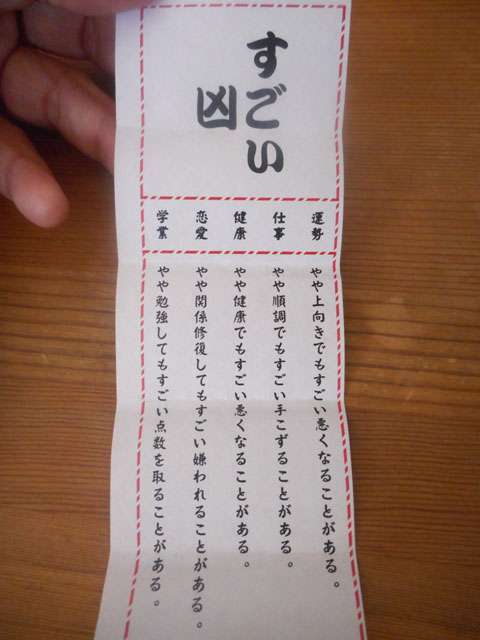 すごい
凶
運勢
やや上向きでもすごい悪くなることがある。
仕事
やや順調でもすごい手こずることがある。
健康
やや健康でもすごい悪くなることがある。
恋愛
やや関係修復してもすごい嫌われることがある。
学業
やや勉強してもすごい点数を取ることがある。